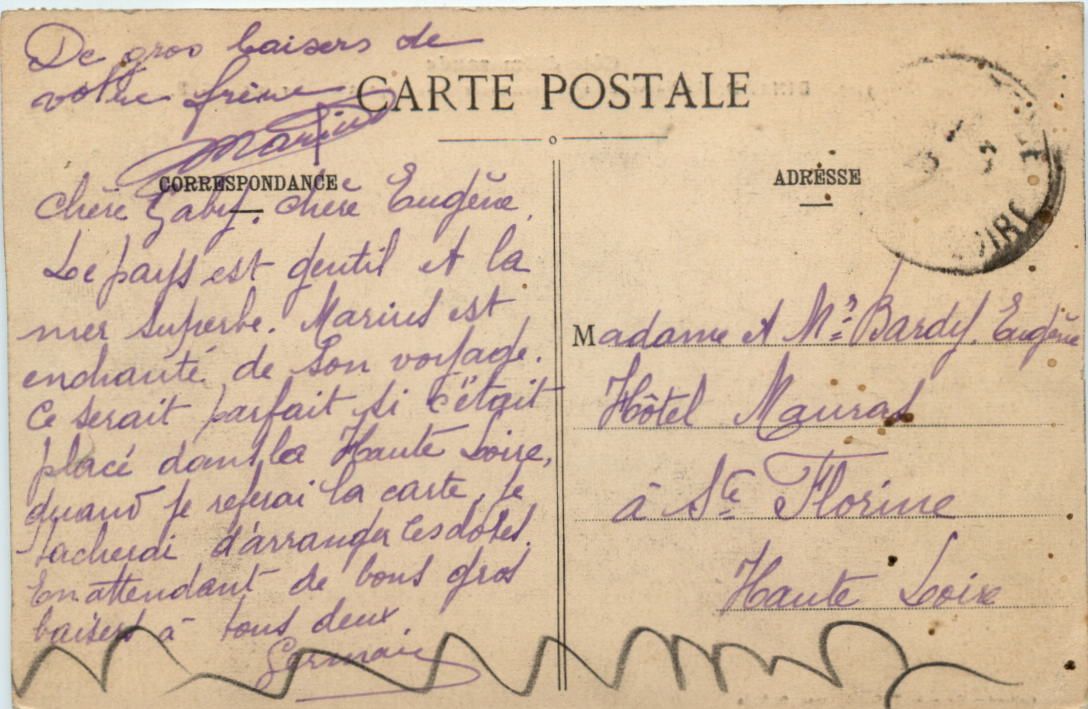 De gros baisers de
votre frère
Marius
CARTE POSTALE
CORRESPONDANCE
ADRESSE
OIRE
Chère Gaby, chère Eugène,
Le pays est gentil et la
mer superbe. Marius est
enchanté de son voyage.
Ce serait parfait si c'était
placé dans la Haute Loire,
quand je referai la carte, je
tacherai d'arranger les
En attendant de bons gros
baisers à tous deux
Germain
Madame et Mr Bardy. Eugène
Hôtel Mauras
à Ste Florine
Haute Loire